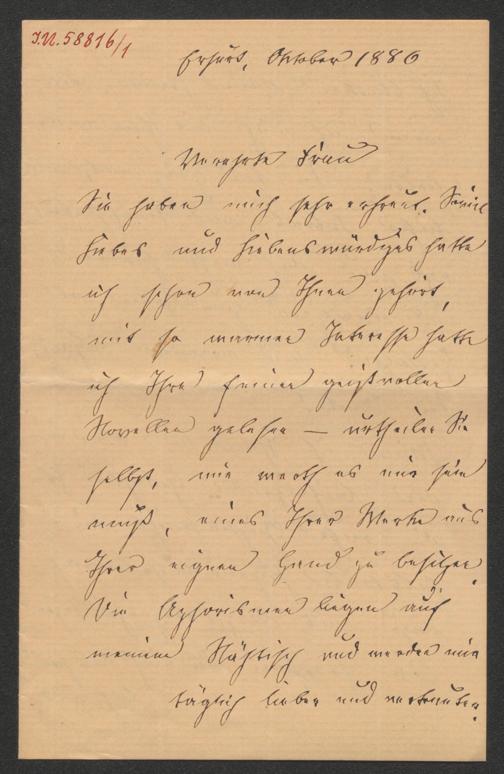 I.N. 58816/1
Erfurt, Oktober 1886
Verehrte Frau
Sie haben mich sehr erfreut. Soviel
Liebes und Liebenswürdiges hatte
ich schon von Ihnen gehört,
mit so warmen Interesse hatte
ich Ihre feinen geistvollen
Novellen gelesen — urtheilen Sie
selbst, wie werth es mir sein
muß, eines Ihrer Werke aus
Ihrer eignen Hand zu besitzen.
Die Aphorismen liegen auf
meinem Nähtisch und werden mir
täglich lieber und vertrauter.